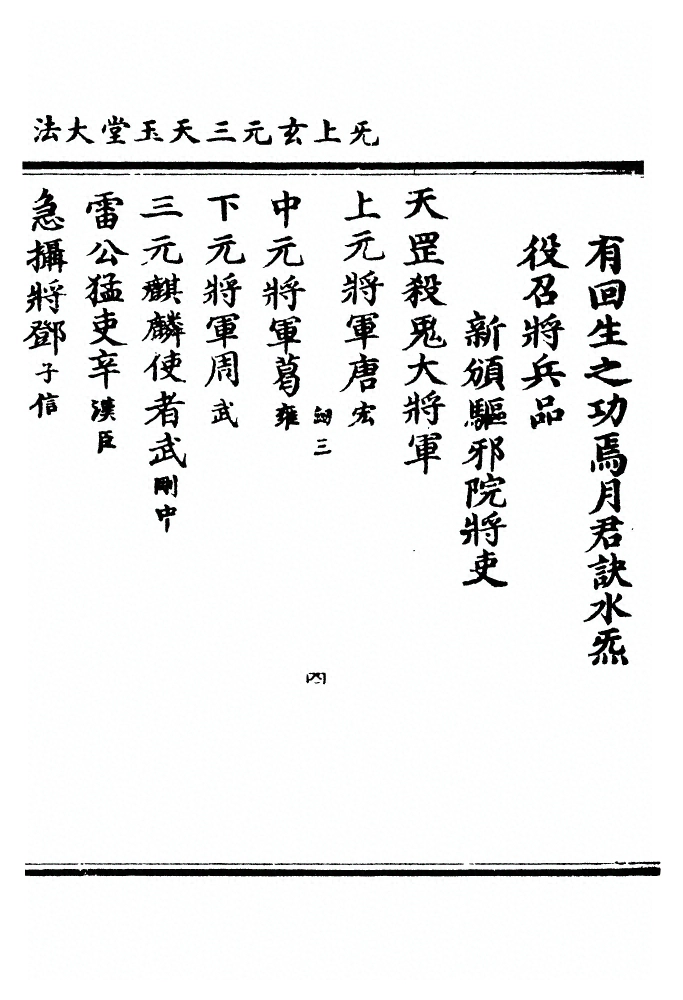 无上玄元三天玉堂大法
有回生之功焉月君訣水炁
役召將兵品
新頒驅邪院將吏
天罡殺鬼大將軍
上元將軍唐宏
劒三
四
中元將軍葛雍
下元將軍周武
三元麒麟使者武剛中
雷公猛吏辛漢臣
急攝將鄧子信